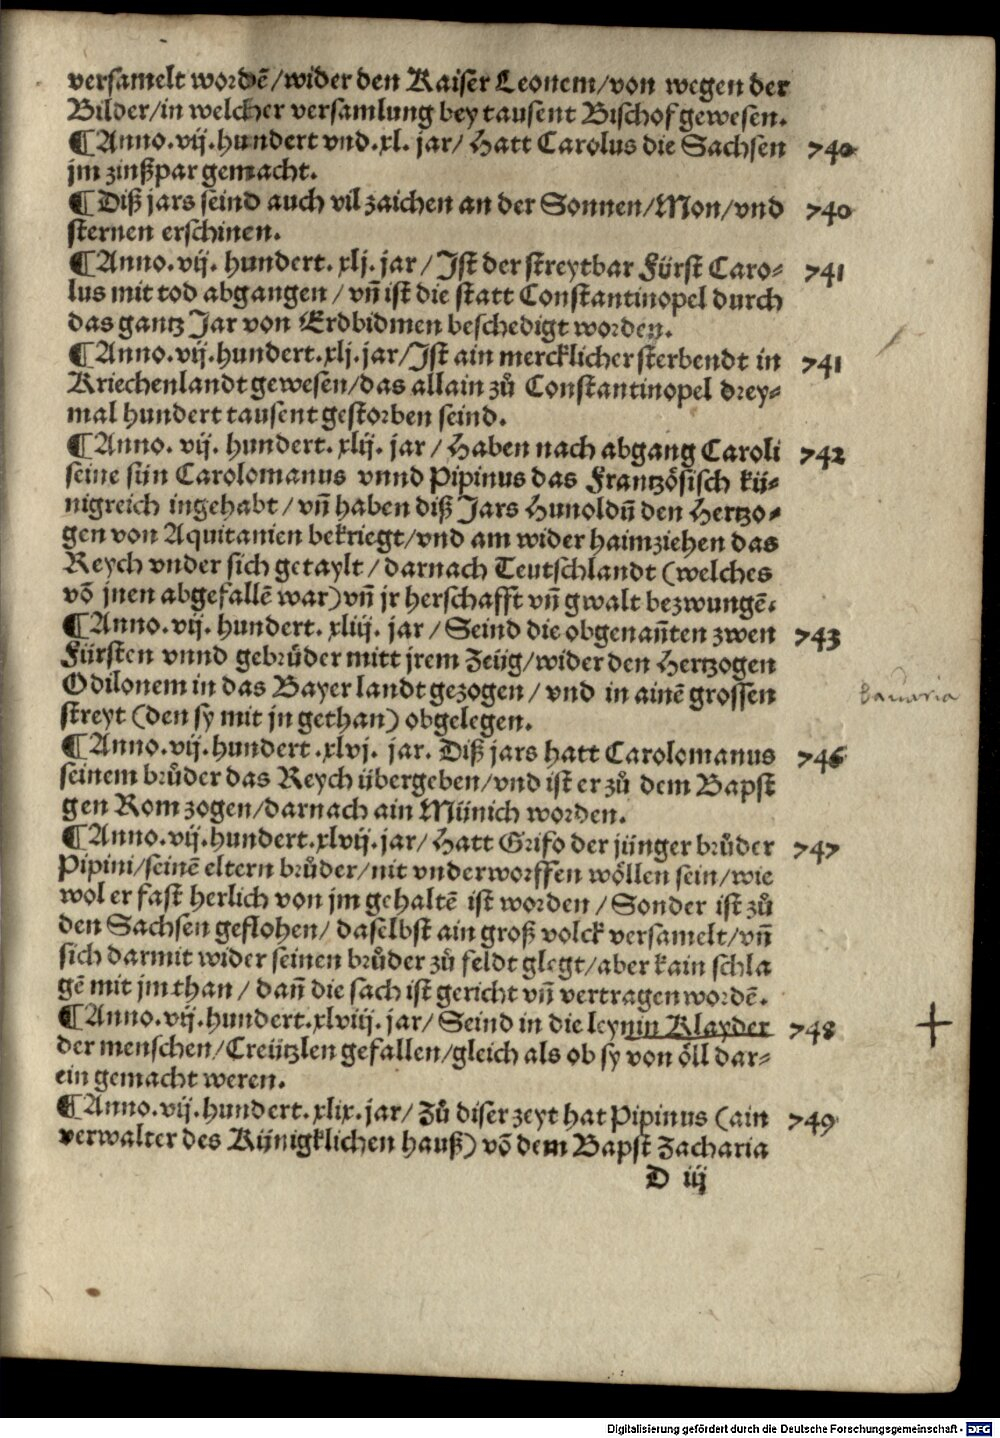 versamelt wordē/wider den Kaiser Leonem/von wegen der
Bilder/in welcher versamlung bey tausent Bischof gewesen.
¶Anno.vij.hundert vnd.xl. jar/ Hatt Carolus die Sachsen 740
jm zinßpar gemacht.
¶Diß jars seind auch vil zaichen an der Sonnen/Mon/vnd 740
sternen erschinen.
¶Anno.vij. hundert. xlj. jar / Ist der streytbar Fürst Caro- 741
lus mit tod abgangen / vn̄ ist die statt Constantinopel durch
das gantz Jar von Erdbidmen beschedigt worden.
¶Anno.vij.hundert.xlj.jar/Ist ain mercklicher sterbendt in 741
Kriechenlandt gewesen/das allain zů Constantinopel drey-
mal hundert tausent gestorben seind.
¶Anno. vij. hundert. xlij. jar / Haben nach abgang Caroli 742
seine sün Carolomanus vnnd Pipinus das Frantzösisch kü-
nigreich ingehabt / vn̄ haben diß Jars Hunoldū den Hertzo-
gen von Aquitanien bekriegt/vnd am wider haimziehen das
Reych vnder sich getaylt / darnach Teutschlandt (welches
vō jnen abgefallē war)vn̄ jr herschafft vn̄ gwalt bezwungē.
¶Anno.vij. hundert. xliij. jar / Seind die obgenan̄ten zwen 743
Fürsten vnnd gebrůder mitt jrem Zeüg/wider den Hertzogen
Odilonem in das Bayer landt gezogen / vnd in ainē grossen bavaria
streyt (den sy mit jn gethan) obgelegen.
¶Anno.vij.hundert .xlvj. jar. Diß jars hatt Carolomanus 746
seinem brůder das Reych übergeben/vnd ist er zů dem Bapst
gen Rom zogen/darnach ain Münich worden.
¶Anno.vij.hundert.xlvij.jar/ Hatt Grifo der jünger brůder 747
Pipini/seinē eltern brůder/nit vnderworffen wöllen sein/wie
wol er fast herlich von jm gehaltē ist worden / Sonder ist zů
den Sachsen geflohen/ daselbst ain groß volck versamelt/vn̄
sich darmit wider seinen brůder zů feldt glegt/aber kain schla
gē mit jm than / dan̄ die sach ist gericht vn̄ vertragen wordē.
¶Anno.vij.hundert.xlviij. jar/ Seind in die leynin Klayder 748
der menschen/Creützlen gefallen/gleich als ob sy von öll dar-
ein gemacht weren.
¶Anno.vij.hundert.xlix.jar/ Zů diser zeyt hat Pipinus (ain 749
verwalter des Künigklichen hauß) vō dem Bapst Zacharia
D iij
Digitalisierung gefördert durch die Deutsche Forschungsgemeinschaft - DFG